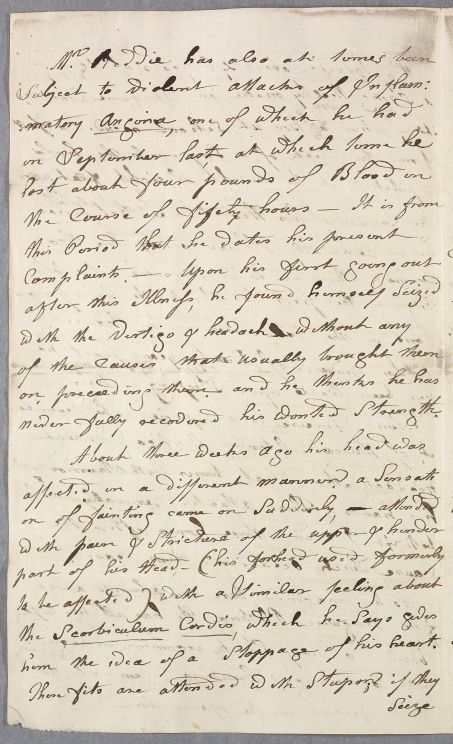 Mr. Heddie has also at times been
Subject to violent attacks of Inflam:
matory Angina one of which he had
in September last at which time he
lost about four pounds of Blood in
the Course of fifety hours — It is from
this Period that he dates his present
Complaints. — Upon his first going out
after this Illness, he found himself Seized
with the Vertigo & headach without any
of the Causes that usually brought them
on preceeding them. and he thinks he has
never fully recovered his wonted Strength.
About three weeks ago his head was
affected in a different manner a Sensati
on of fainting came on Suddenly, — attended
with pain & Stricture of the upper & hinder
part of his Head — (his forhead used formerly
to be affected) with a Similar feeling about
the Scorbiculum Cordis, which he Says gives
him the idea of a Stoppage of his heart.
These fits are attended with Stupor, if they
Seize